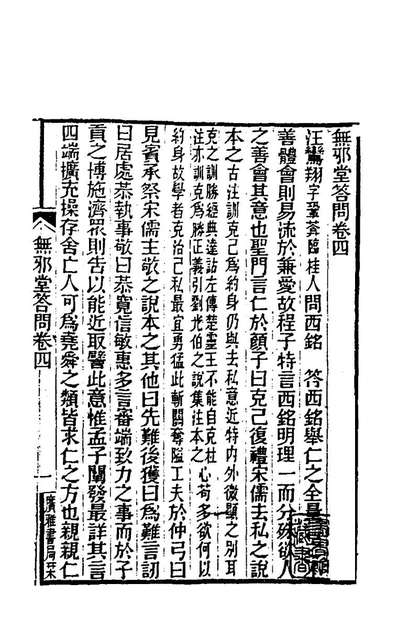 無邪堂答問卷四
汪鸞翔字鞏菴臨桂人問西銘　答西銘舉仁之全量
善體會則易流於兼愛故程子特言西銘明理一而分殊欲人
之善會其意也聖門言仁於顏子曰克己復禮宋儒去私之說
本之古注訓克己爲約身仍與去私意近特內外微顯之別耳
克之訓勝經典達詁左傳楚靈王不能自克杜
注亦訓克爲勝正義引劉光伯之說集注本之
心苟多欲何以
約身故學者克治己私最宜勇猛此斬關奪隘工夫於仲弓曰
見賓承祭宋儒主敬之說本之其他曰先難後獲曰爲難言訒
曰居處恭執事敬曰恭寬信敏惠多言審端致力之事而於子
貢之博施濟眾則告以能近取譬此意惟孟子闡發最詳其言
四端擴充操存舍亡人可爲堯舜之類皆求仁之方也親親仁
無邪堂答問卷四
一
廣雅書局栞